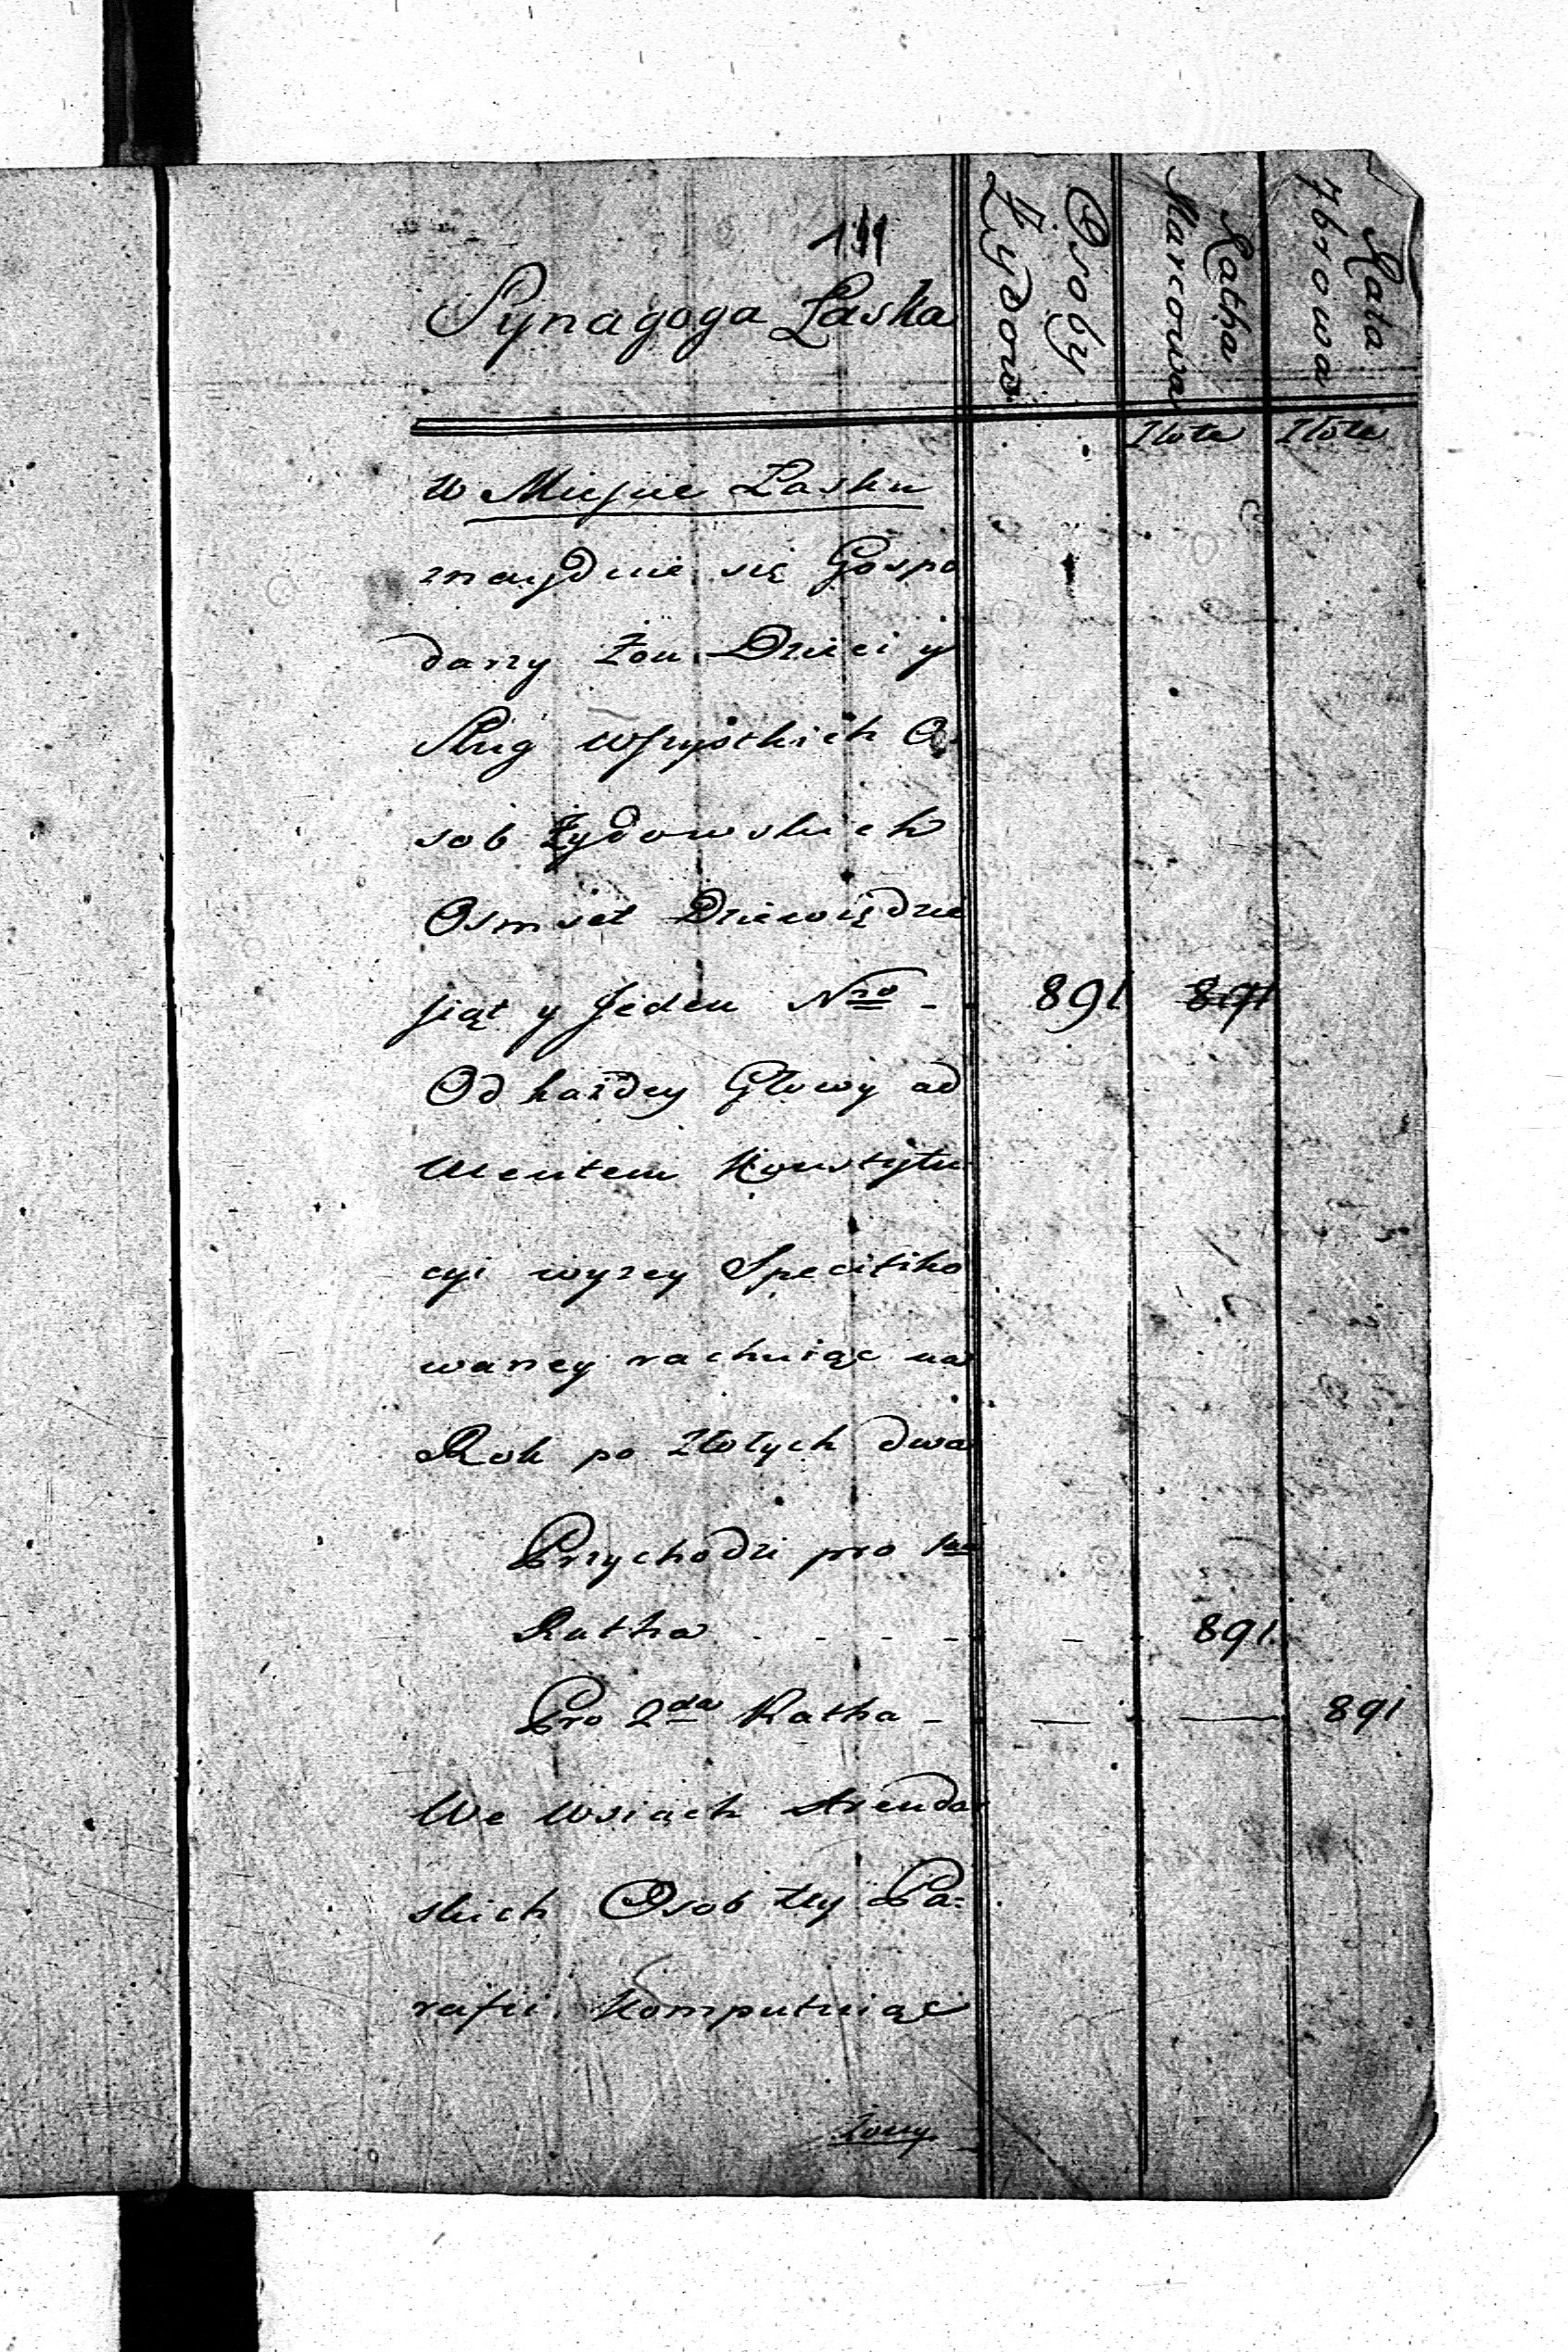 Synagoga Łaska
Osoby
Żydow
Ratha
Marcowa
Rata
7browa
Złote Złote
w Mieście Łasku
znayduie się Gospo
darzy Żon Dzieci y
Sług wszystkich O
sob Żydowskich
Osmset Dziewiędzie
siąt y Jeden Nro - 891 891
Od każdey Głowy ad
Mentem Konstytu
cyi wyzey Specifiko
waney rachuiąc na
Rok po Złotych dwa
Przychodzi pro 1ma
Ratha - - - - - 891
Pro 2da Ratha - — — 891
We Wsiach Arendar
skich Osob tey Pa:
rafii Komputuiąc
żony